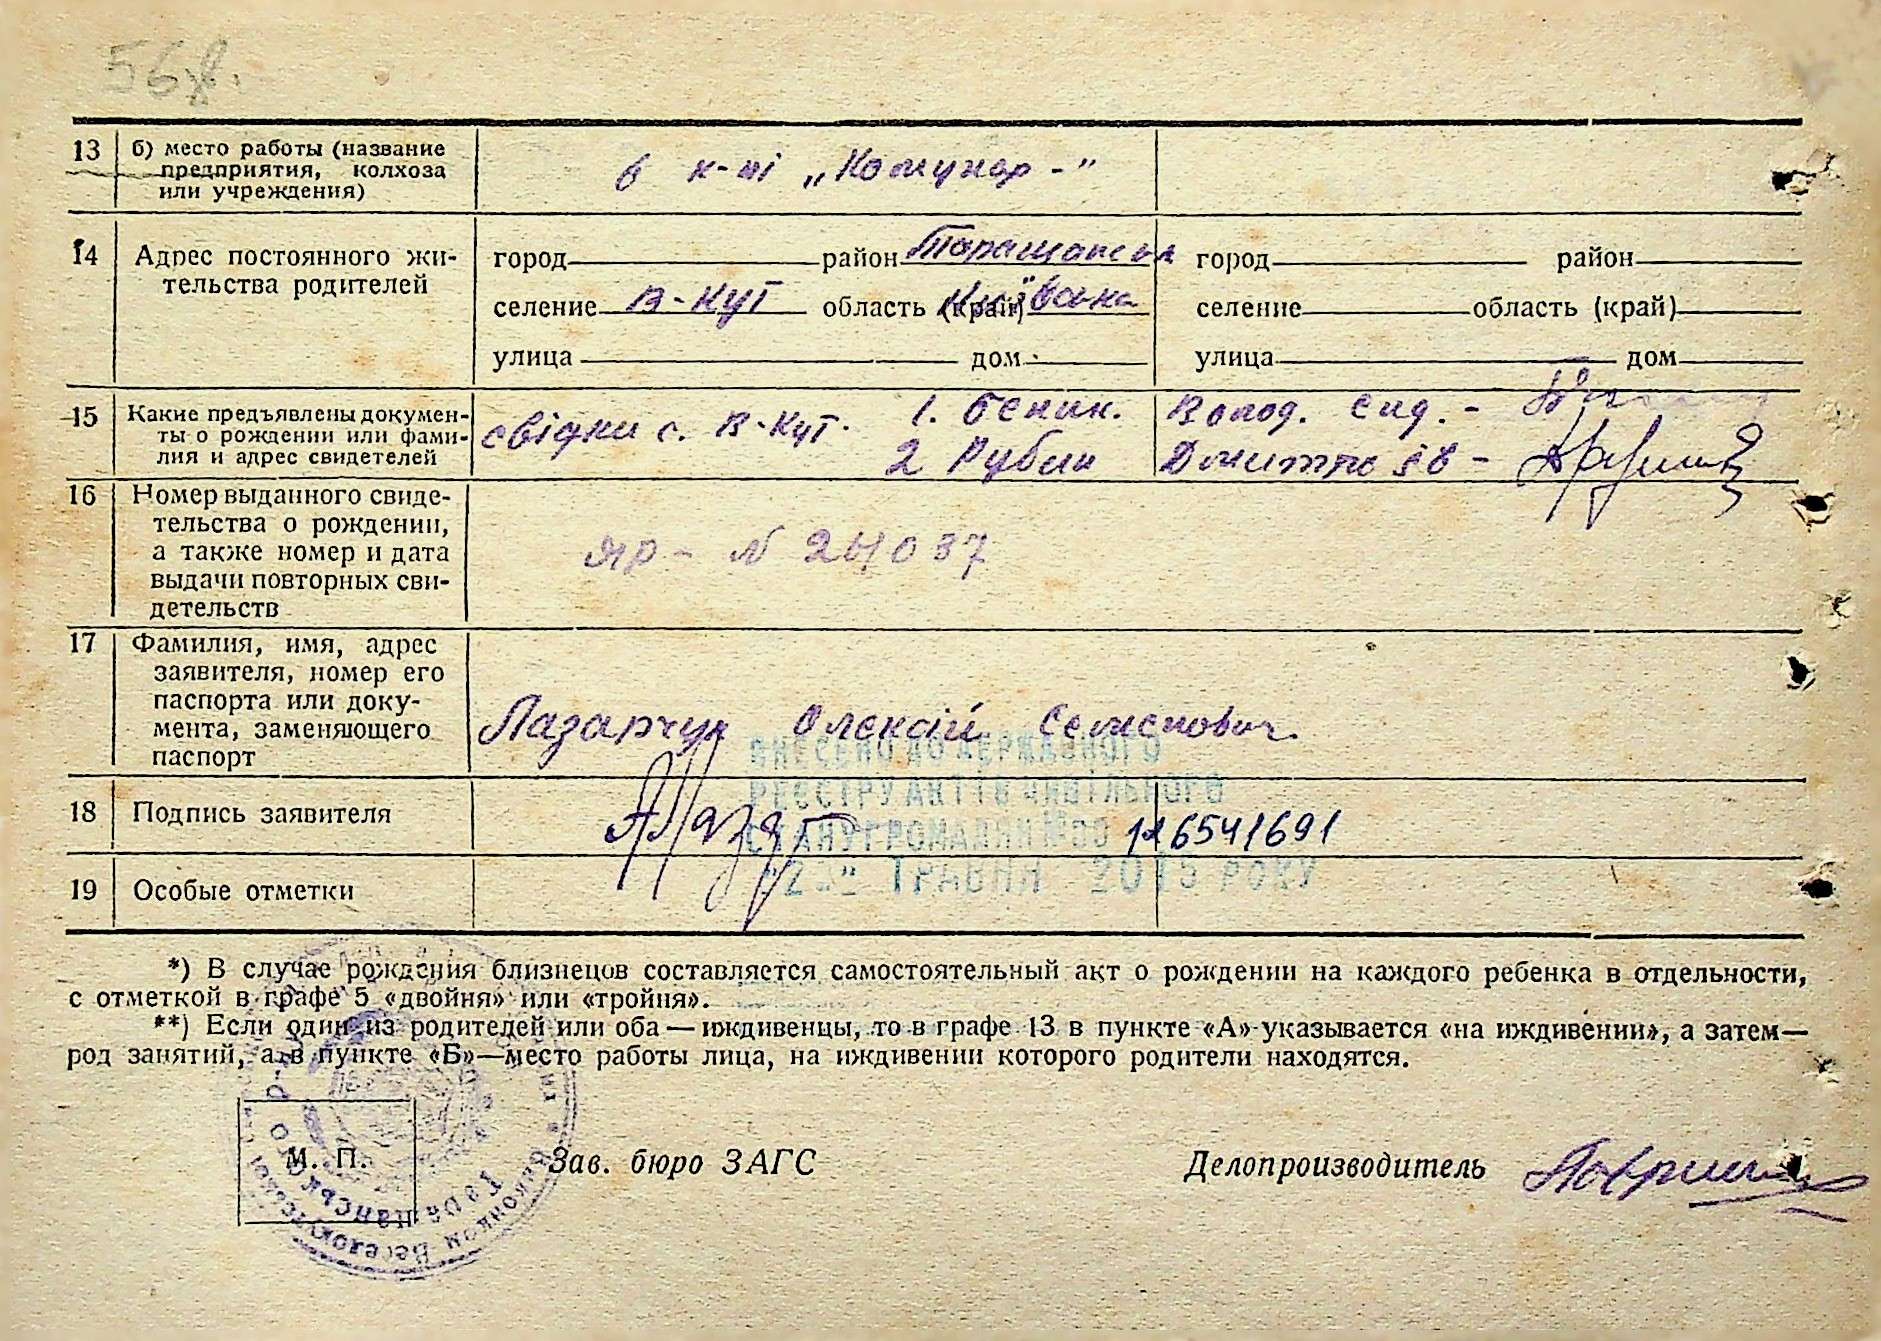 13 б) место работы (название
предприятия, колхоза
или учреждения)
в к-пі „Комунар-”
14 Адрес постоянного жи-
тельства родителей
город район Таращанськ
селение В-Кут область (край) Київська
улица дом
город район
селение область (край)
улица дом
15 Какие предъявлены докумен-
ты о рождении или фами-
лия и адрес свидетелей
свідки с. В-Кут. 1. Волод. Сид. -
2 Рубан -
16 Номер выданного свиде-
тельства о рождении,
а также номер и дата
выдачи повторных сви-
детельств
ЯР - N 241037
17 Фамилия, имя, адрес
заявителя, номер его
паспорта или доку-
мента, заменяющего
паспорт
Лазарчук Олексій Семенович
ВНЕСЕНО ДО ДЕРЖАВНОГО
РЕЄСТРУ АКТІВ ЦИВІЛЬНОГО
СТАНУ ГРОМАДЯН №00 126541691
ТРАВНЯ 2015 РОКУ
18 Подпись заявителя
19 Особые отметки
*) В случае рождения близнецов составляется самостоятельный акт о рождении на каждого ребенка в отдельности,
с отметкой в графе 5 «двойня» или «тройня».
**) Если один из родителей или оба — иждивенцы, то в графе 13 в пункте «А» указывается «на иждивении», а затем—
род занятий, а в пункте «Б»—место работы лица, на иждивении которого родители находятся.
М. П.
Зав. бюро ЗАГС
Делопроизводитель